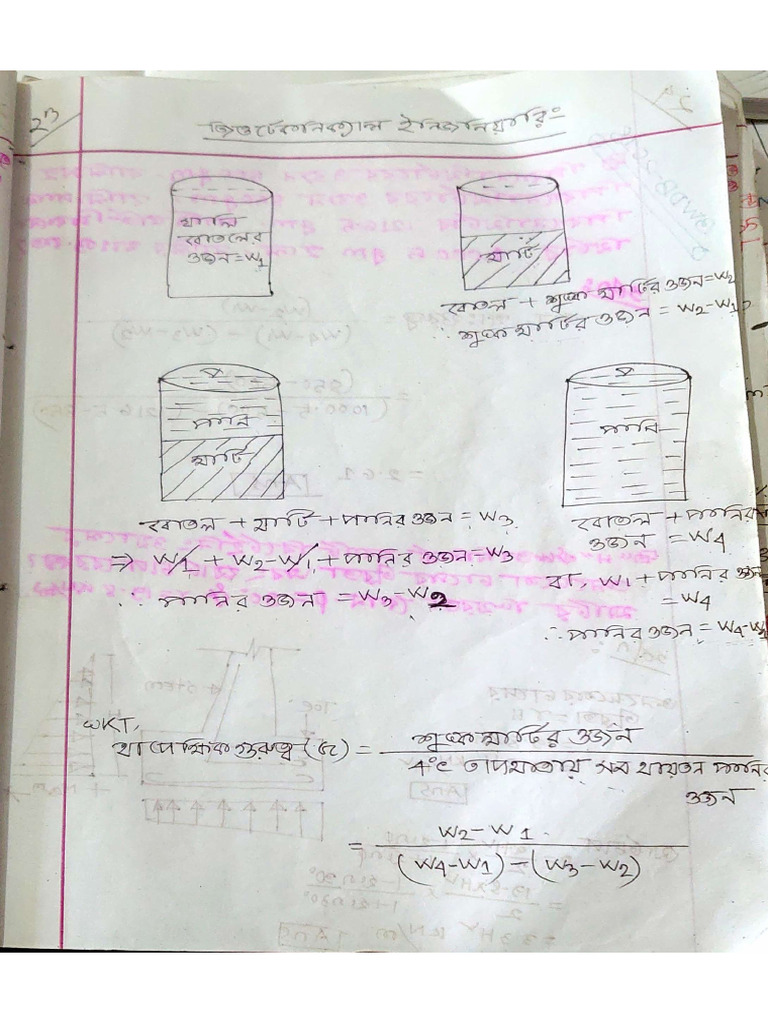 জিওটেকনিক্যাল ইনজিনিয়ারিং
খালি
বোতলের
ওজন=W1
মাটি
বোতল + শুষ্ক মাটির ওজন=W2
∴ শুষ্ক মাটির ওজন = W2-W1
পানি
মাটি
বোতল + মাটি + পানির ওজন = W3
⇒ W1 + W2-W1 + পানির ওজন=W3
∴ পানির ওজন = W3-W2
পানি
বোতল + পানির
ওজন = W4
বা, W1 + পানির ওজন
= W4
∴ পানির ওজন = W4-W1
WKT,
আপেক্ষিক গুরুত্ব (G) = শুষ্ক মাটির ওজন
4°c তাপমাত্রায় সম আয়তন পানির
ওজন
= W2-W1
(W4-W1)-(W3-W2)